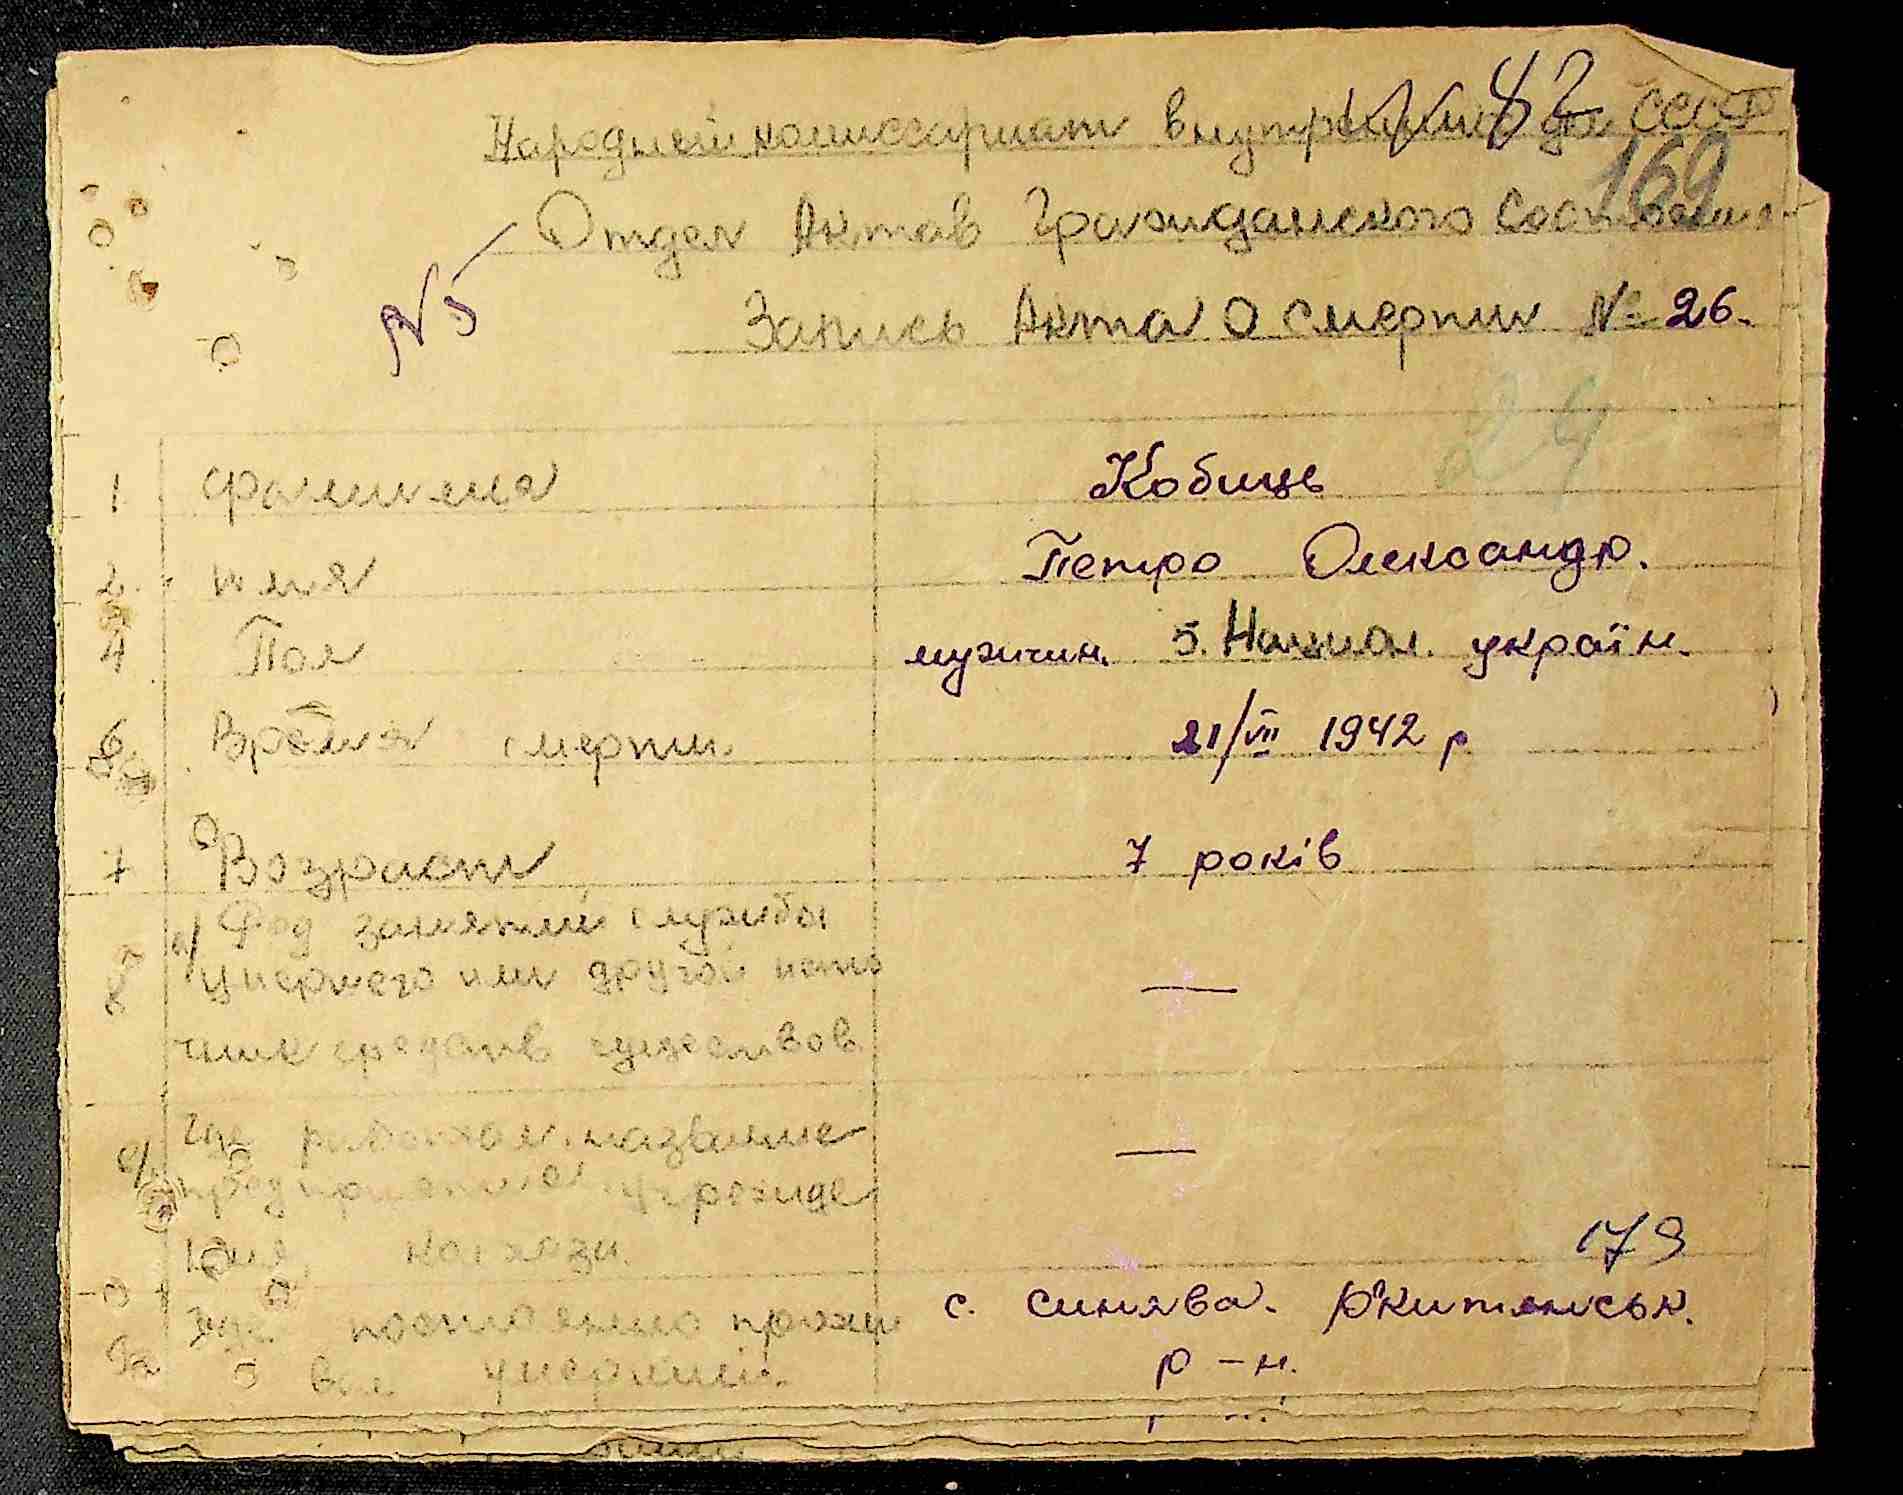 42
Народный комиссариат Внутренних дел СССР
169
Отдел Актов Гражданского Состояния
№5
Запись Акта о смерти № 26.
24
1 Фамилия Кобиць
2 имя Петро Олександр.
4 Пол мужчин. 5. Национ. україн.
6 Время смерти. 21/VII 1942 р
7 Возраст 7 років
8 а/ Род занятий службы
умершего или другой исто
чник средств существов. —
в/ Где работал. название
предприятия учрежде —
ния, колхоза. 179
9а где постоянно прожи с. Синява. Рокитянськ.
вал умерший. р-н.